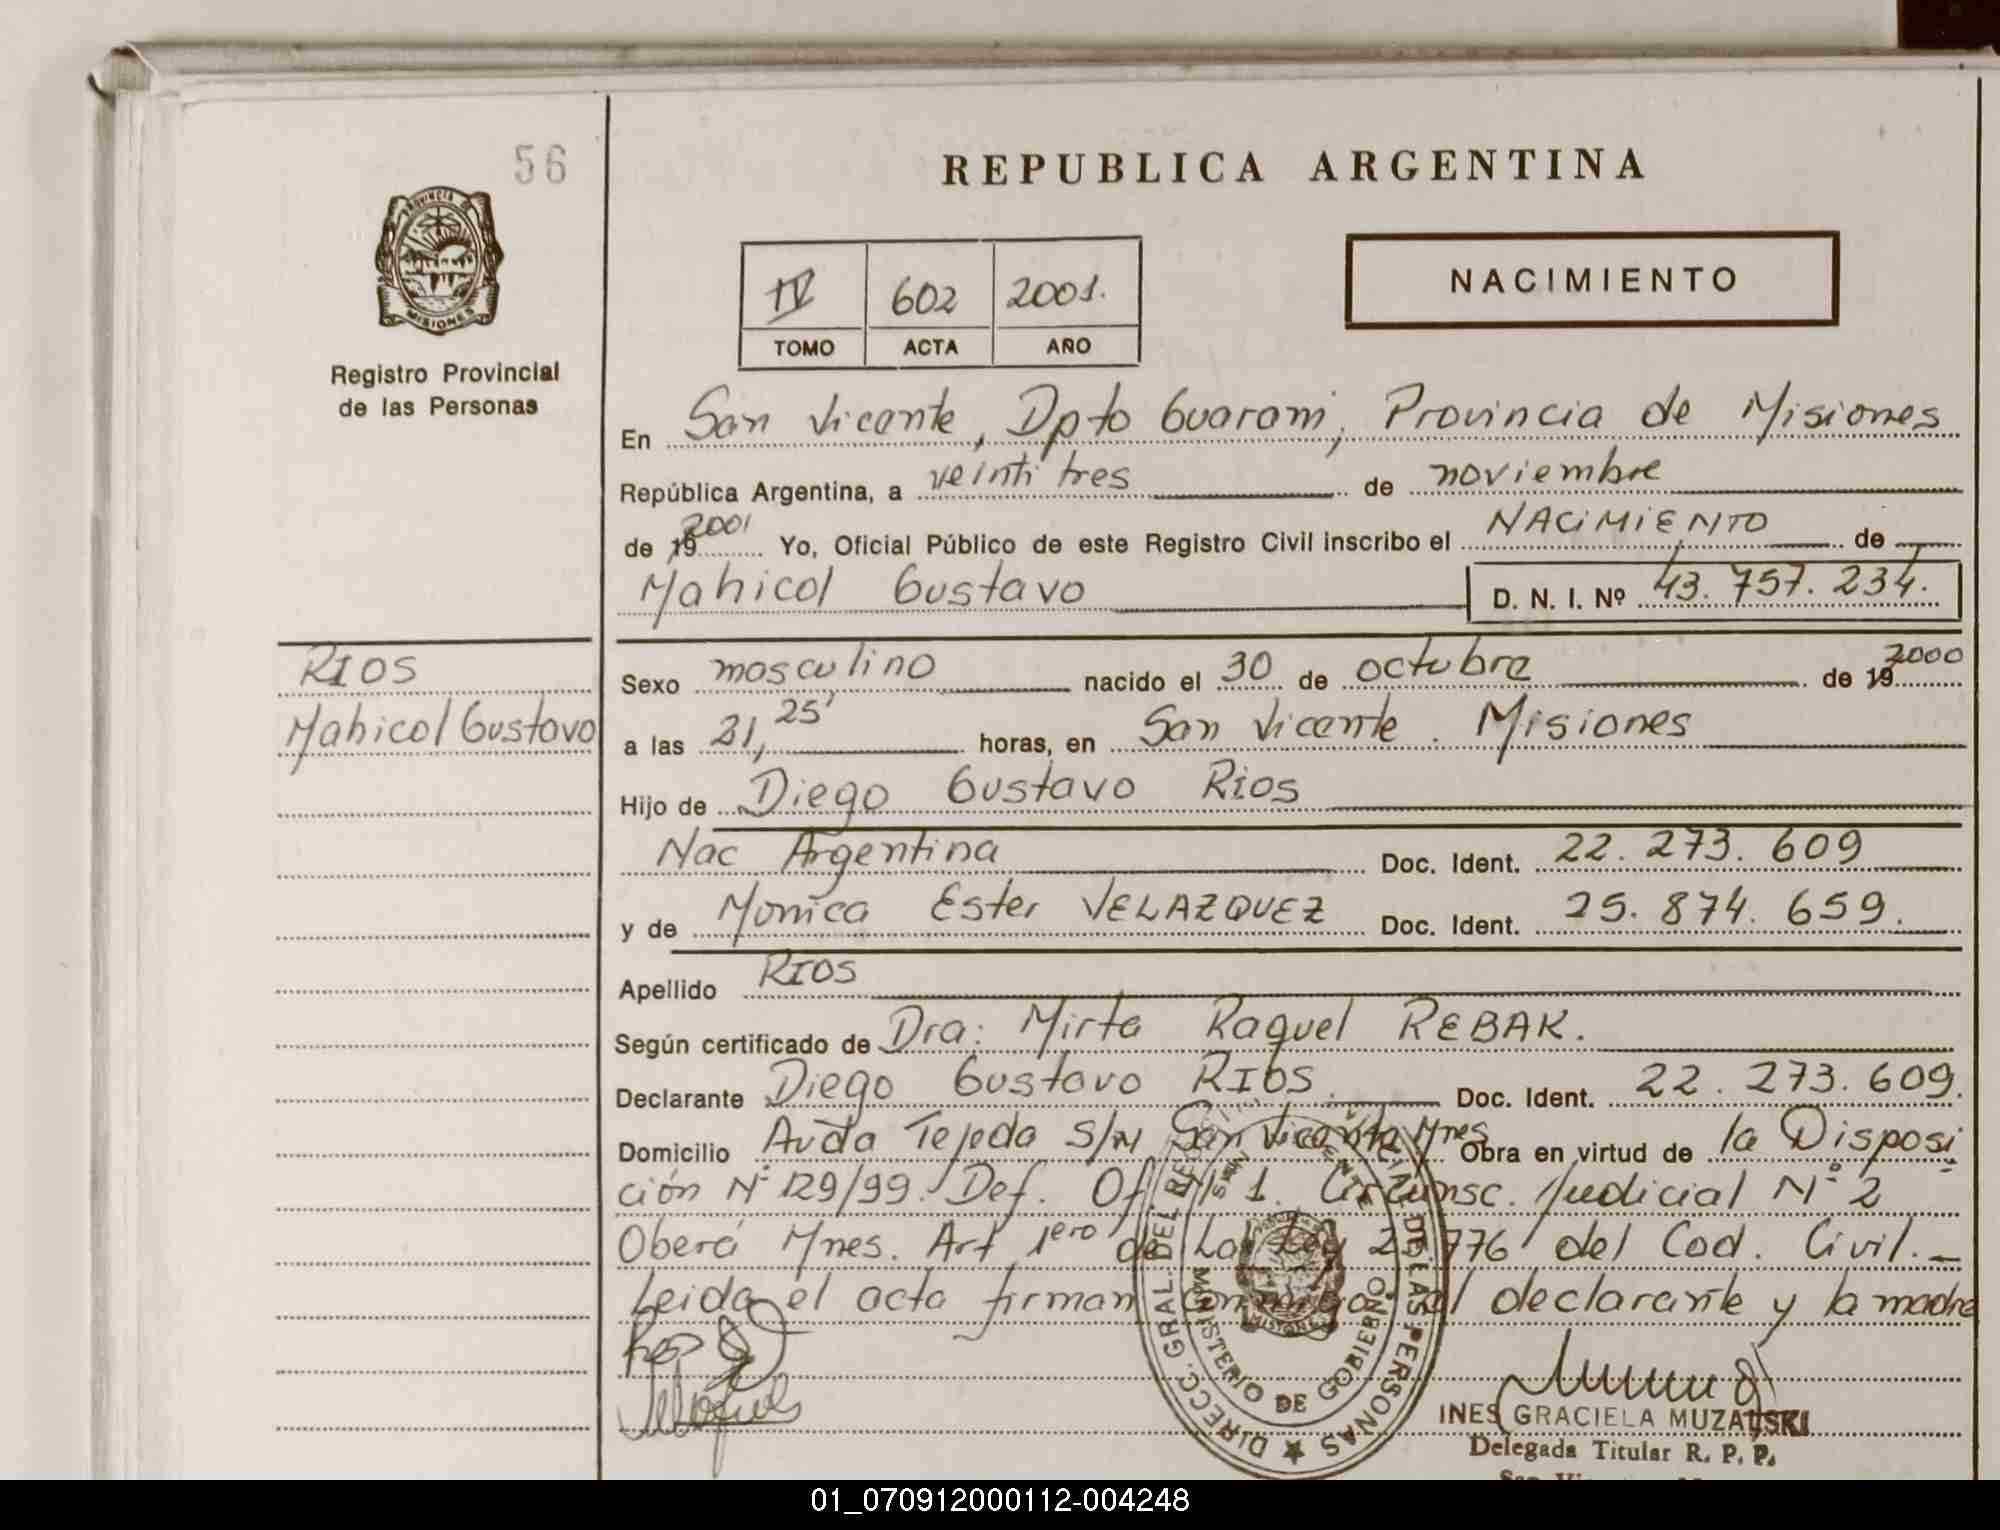 56
REPUBLICA ARGENTINA
PROVINCIA DE
MISIONES
Registro Provincial
de las Personas
IV 602 2001.
TOMO ACTA AÑO
NACIMIENTO
En San Vicente, Dpto Guarani, Provincia de Misiones
República Argentina, a veinti tres de noviembre
de 19 2001 Yo, Oficial Público de este Registro Civil inscribo el NACIMIENTO de
Mahicol Gustavo D. N. I. Nº 43.757.234.
RIOS
Mahicol Gustavo
Sexo masculino nacido el 30 de octubre de 19 2000
a las 21, 25' horas, en San Vicente. Misiones
Hijo de Diego Gustavo Rios
Nac Argentina Doc. Ident. 22.273.609
y de Monica Ester VELAZQUEZ Doc. Ident. 25.874.659.
Apellido RIOS
Según certificado de Dra: Mirta Raquel REBAK.
Declarante Diego Gustavo RIOS. Doc. Ident. 22.273.609.
Domicilio Avda Tejeda S/N San Vicente Mnes Obra en virtud de la Disposi
ción Nº 129/99. Def. Of. Nº 1. Circunsc. Judicial Nº 2
Oberá Mnes. Art 1ero de La Ley 776 del Cod. Civil.
Leida el acta firman conmigo el declarante y la madre
DIRECC. GRAL. DEL REGISTRO PROVINCIAL DE LAS PERSONAS
SAN VICENTE
MINISTERIO DE GOBIERNO
MISIONES
INES GRACIELA MUZALSKI
Delegada Titular R. P. P.
01_070912000112-004248